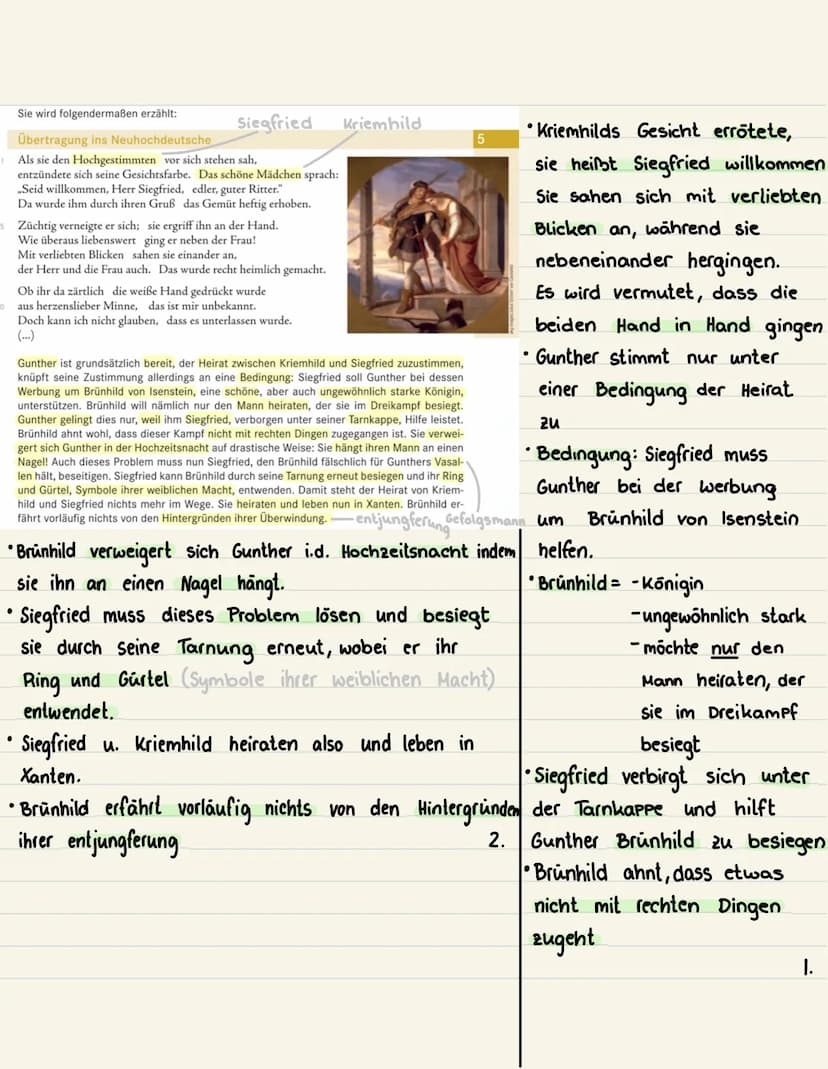 Sie wird folgendermaßen erzählt:
Siegfried Kriemhild
Übertragung ins Neuhochdeutsche 5
1 Als sie den Hochgestimmten vor sich stehen sah,
entzündete sich seine Gesichtsfarbe. Das schöne Mädchen sprach:
„Seid willkommen, Herr Siegfried, edler, guter Ritter.“
Da wurde ihm durch ihren Gruß das Gemüt heftig erhoben.
5 Züchtig verneigte er sich; sie ergriff ihn an der Hand.
Wie überaus liebenswert ging er neben der Frau!
Mit verliebten Blicken sahen sie einander an,
der Herr und die Frau auch. Das wurde recht heimlich gemacht.
Ob ihr da zärtlich die weiße Hand gedrückt wurde
0 aus herzenslieber Minne, das ist mir unbekannt.
Doch kann ich nicht glauben, dass es unterlassen wurde.
(...)
Gunther ist grundsätzlich bereit, der Heirat zwischen Kriemhild und Siegfried zuzustimmen,
knüpft seine Zustimmung allerdings an eine Bedingung: Siegfried soll Gunther bei dessen
Werbung um Brünhild von Isenstein, eine schöne, aber auch ungewöhnlich starke Königin,
unterstützen. Brünhild will nämlich nur den Mann heiraten, der sie im Dreikampf besiegt.
Gunther gelingt dies nur, weil ihm Siegfried, verborgen unter seiner Tarnkappe, Hilfe leistet.
Brünhild ahnt wohl, dass dieser Kampf nicht mit rechten Dingen zugegangen ist. Sie verwei-
gert sich Gunther in der Hochzeitsnacht auf drastische Weise: Sie hängt ihren Mann an einen
Nagel! Auch dieses Problem muss nun Siegfried, den Brünhild fälschlich für Gunthers Vasal-
len hält, beseitigen. Siegfried kann Brünhild durch seine Tarnung erneut besiegen und ihr Ring
und Gürtel, Symbole ihrer weiblichen Macht, entwenden. Damit steht der Heirat von Kriem-
hild und Siegfried nichts mehr im Wege. Sie heiraten und leben nun in Xanten. Brünhild er-
fährt vorläufig nichts von den Hintergründen ihrer Überwindung. entjungferung Gefolgsmann
• Kriemhilds Gesicht errötete,
sie heißt Siegfried willkommen
Sie sahen sich mit verliebten
Blicken an, während sie
nebeneinander hergingen.
Es wird vermutet, dass die
beiden Hand in Hand gingen
• Gunther stimmt nur unter
einer Bedingung der Heirat
zu
• Bedingung: Siegfried muss
Gunther bei der Werbung
um Brünhild von Isenstein
helfen.
• Brünhild = - Königin
- ungewöhnlich stark
- möchte nur den
Mann heiraten, der
sie im Dreikampf
besiegt
• Siegfried verbirgt sich unter
der Tarnkappe und hilft
Gunther Brünhild zu besiegen
• Brünhild ahnt, dass etwas
nicht mit rechten Dingen
zugeht
1.
• Brünhild verweigert sich Gunther i.d. Hochzeitsnacht indem
sie ihn an einen Nagel hängt.
• Siegfried muss dieses Problem lösen und besiegt
sie durch seine Tarnung erneut, wobei er ihr
Ring und Gürtel (Symbole ihrer weiblichen Macht)
entwendet.
• Siegfried u. Kriemhild heiraten also und leben in
Xanten.
• Brünhild erfährt vorläufig nichts von den Hintergründen
ihrer entjungferung 2.